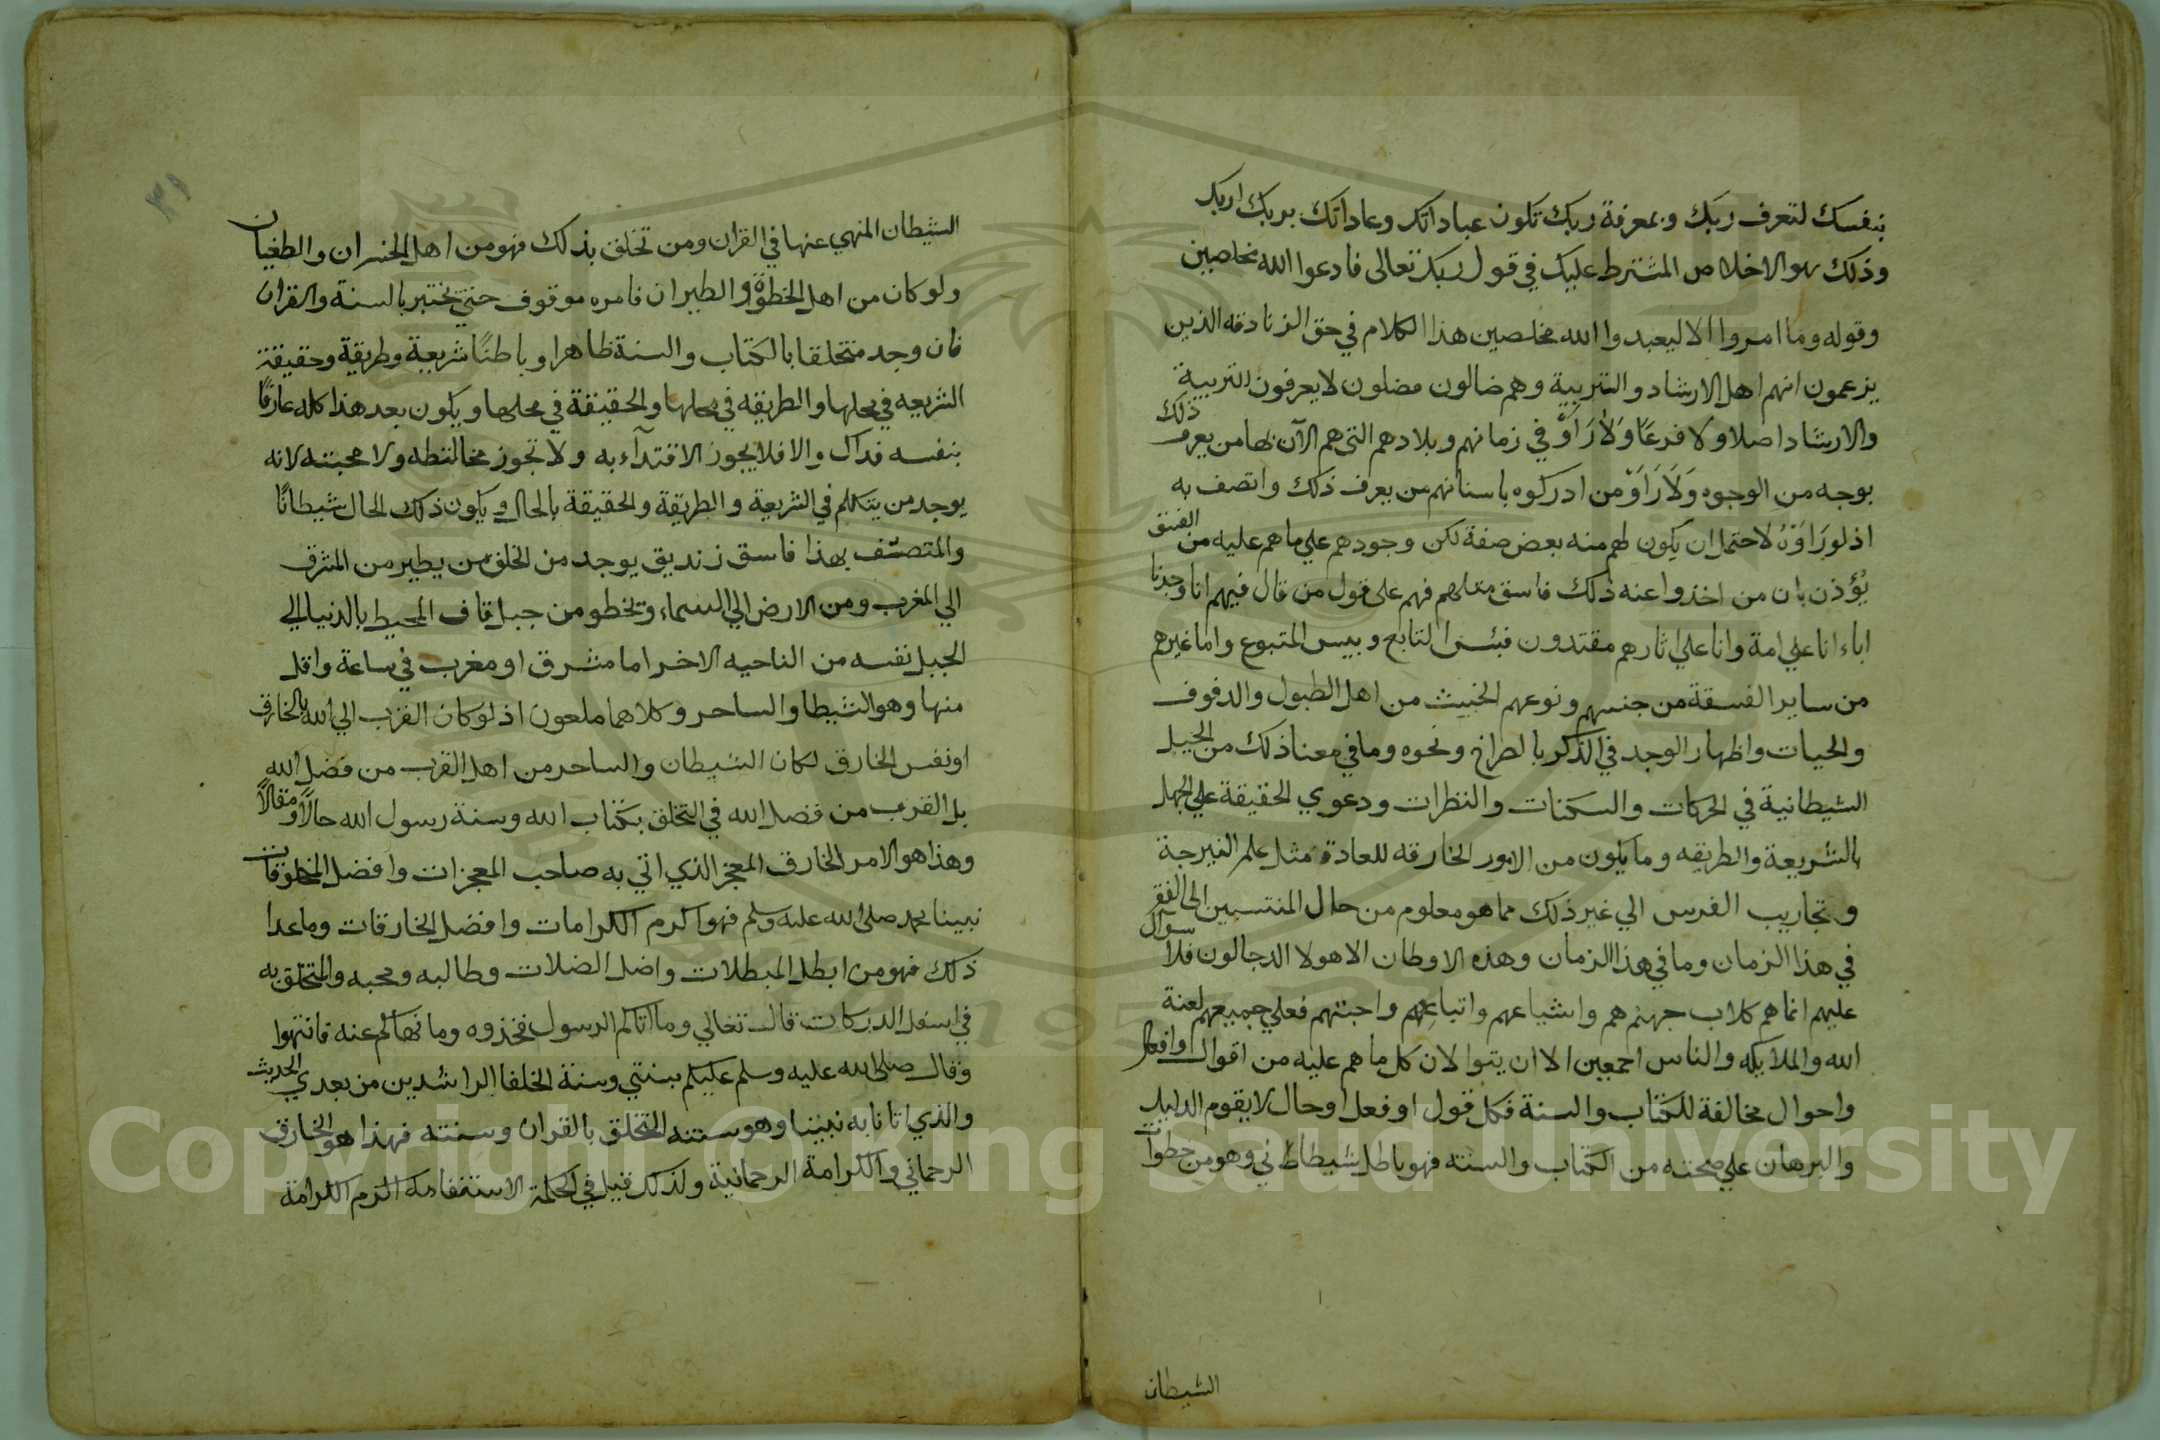 بنفسك لتعرف ربك وبمعرفة ربك تكون عباداتك وعاداتك بربك لربك
وذلك هو الاخلاص المشترط عليك في قول ربك تعالى فادعوا الله مخلصين
وقوله وما امروا الا ليعبدوا الله مخلصين هذا الكلام في حق الزنادقه الذين
يزعمون انهم اهل الارشاد والتربية وهم ضالون مضلون لا يعرفون التربية
والارشاد اصلا ولا فرعًا ولا رَاَوْ في زمانهم وبلادهم التى هم الآن بها من يعرف ذلك
بوجه من الوجوه ولا رَاَوْ من ادركوه باسنانهم من يعرف ذلك واتصف به
اذ لو رَاَوْهُ لاحتمل ان يكون لهم منه بعض صفة لكن وجودهم على ما هم عليه من الفسق
يُؤذن بان من اخذوا عنه ذلك فاسق مثلهم فهم على قول من قال فيهم انا وجدنا
اباءنا علي امة وانا علي اثارهم مقتدون فبئس التابع وبيس المتبوع واما غيرهم
من ساير الفسقة من جنسهم ونوعهم الخبيث من اهل الطبول والدفوف
والحيات واظهار الوجد في الذكر بالصراخ ونحوه وما في معنا ذلك من الحيل
الشيطانية في الحركات والسكنات والنظرات ودعوي الحقيقة علي الجهل
بالشريعة والطريقه وما يكون من الامور الخارقه للعادة مثل علم النيرجة
وتجاريب الفرس الي غير ذلك مما هو معلوم من حال المنتسبين الى الفقر
في هذا الزمان وما في هذا الزمان وهذه الاوطان الا هولا الدجالون فلا سوال
عليهم انما هم كلاب جهنم هم واشياعهم واتباعهم واحبتهم فعلي جميعهم لعنة
الله والملايكه والناس اجمعين الا ان يتوبوا لان كل ما هم عليه من اقوال او افعال
واحوال مخالفة للكتاب والسنة فكل قول او فعل او حال لا يقوم الدليل
والبرهان علي صحته من الكتاب والسنه فهو باطل شيطاني وهو من خطوات
الشيطان
الشيطان المنهي عنها في القران ومن تخلق بذلك فهو من اهل الخسران والطغيان
ولو كان من اهل الخطوة والطيران فامره موقوف حتى يختبر بالسنة والقران
فان وجد متخلقا بالكتاب والسنة ظاهرا وباطنًا شريعة وطريقة وحقيقة
الشريعه في محلها والطريقه في محلها والحقيقة في محلها ويكون بعد هذا كله عارفًا
بنفسه فذاك والا فلا يجوز الاقتدآء به ولا تجوز مخالطته ولا محبته لانه
يوجد من يتكلم في الشريعة والطريقة والحقيقة بالحال ويكون ذلك الحال شيطانًا
والمتصف بهذا فاسق زنديق يوجد من الخلق من يطير من المشرق
الي المغرب ومن الارض الي السماء ويخطو من جبل قاف المحيط بالدنيا الي
الجبل نفسه من الناحيه الاخر اما مشرق او مغرب في ساعة واقل
منها وهو الشيطا والساحر وكلاهما ملعون اذ لو كان القرب الي الله بالخارق
او نفس الخارق لكان الشيطان والساحر من اهل القرب من فضل الله
بل القرب من فضل الله في التخلق بكتاب الله وسنة رسول الله حالًا ومقالًا
وهذا هو الامر الخارق المعجز الذي اتي به صاحب المعجزات وافضل المخلوقات
نبينا محمد صلى الله عليه وسلم فهو اكرم الكرامات وافضل الخارقات وما عدا
ذلك فهو من ابطل المبطلات واضل الضلات وطالبه ومحبه والمتخلق به
في اسفل الدركات قال تعالي وما اتاكم الرسول فخذوه وما نهاكم عنه فانتهوا
وقال صلى الله عليه وسلم عليكم بسنتي وسنة الخلفا الراشدين من بعدي الحديث
والذي اتانا به نبينا وهو سنته التخلق بالقران وسنته فهذا هو الخارق
الرحماني والكرامة الرحمانية ولذلك قيل في الحكمة الاستقامه الزم الكرامة